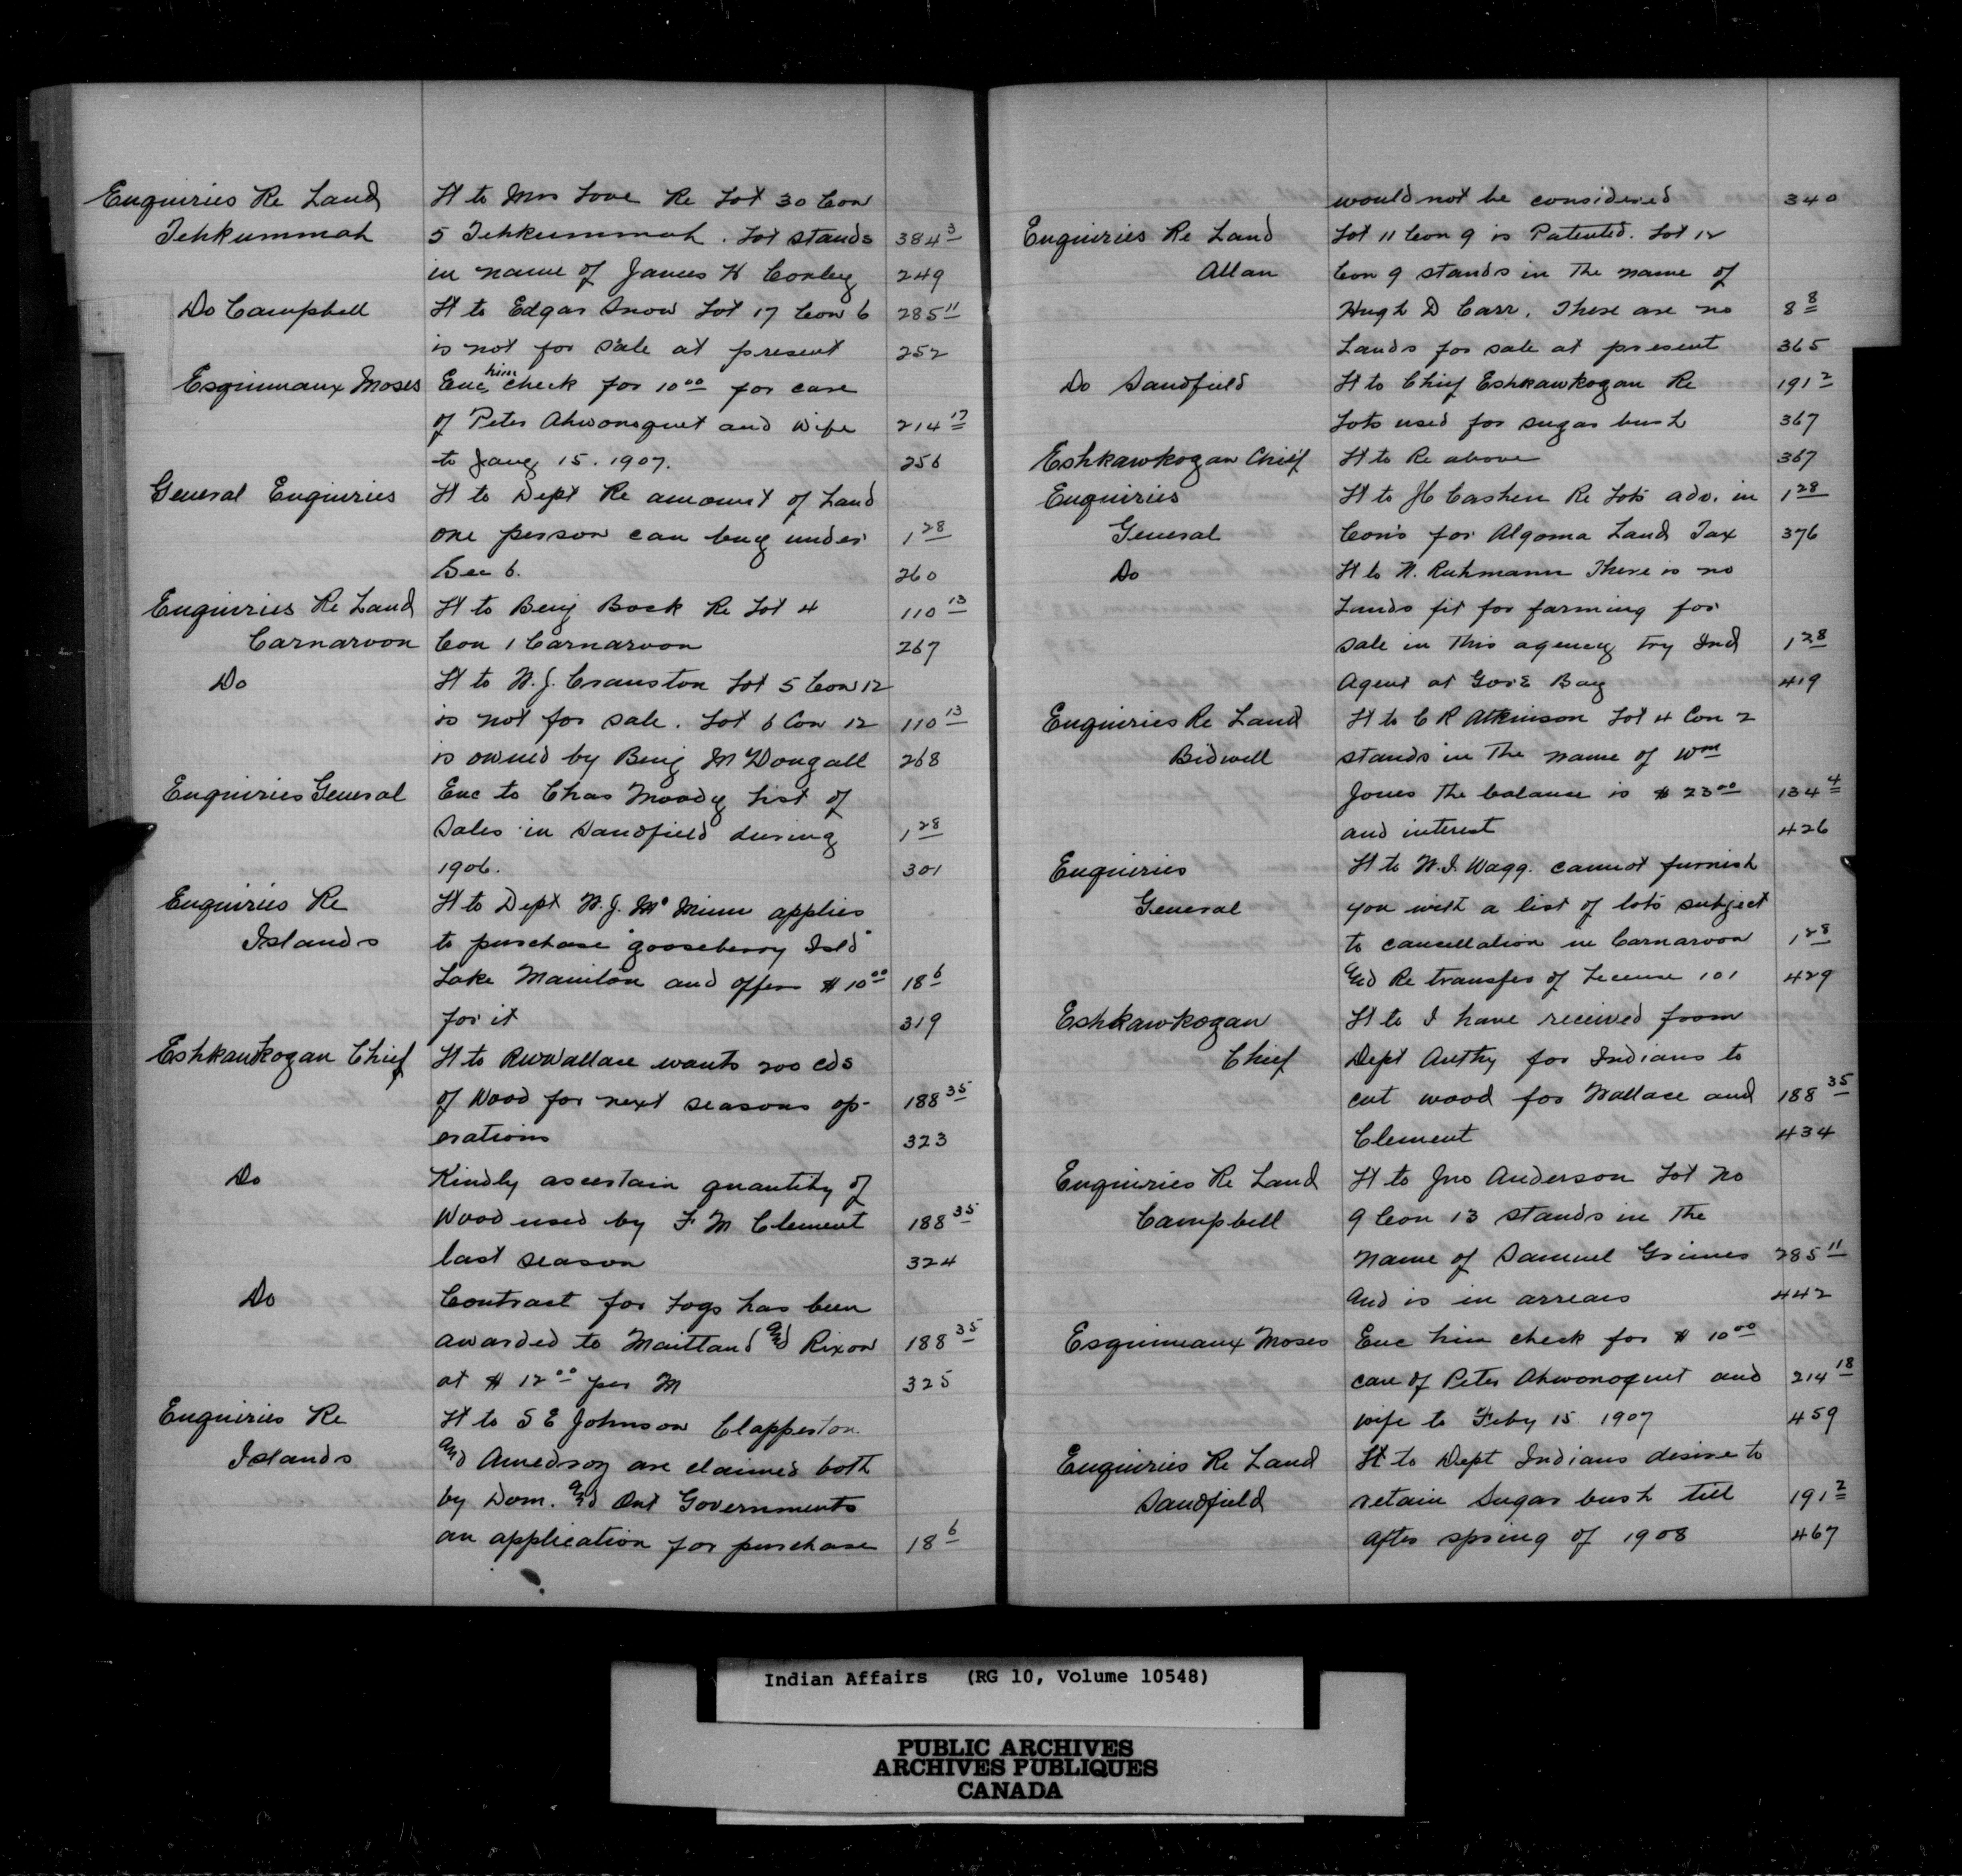 Enquiries Re Land Lt to Mrs Love Re Lot 30 Con
Tehkummah 5 Tehkummah. Lot stands 384 3
in name of James H Corley 249
Do Campbell Lt to Edgar Snow Lot 17 Con 6 285 11
is not for sale at present 252
Esquimaux Moses Enc him check for 10 00 for care
of Peter Ahwonoquet and Wife 214 17
to Jany 15. 1907. 256
General Enquiries Lt to Dept Re amount of Land
one person can buy under 1 28
Sec 6. 260
Enquiries Re Land Lt to Benj Bock Re Lot 4 110 13
Carnarvon Con 1 Carnarvon 267
Do Lt to W. J. Cranston Lot 5 Con 12
is not for sale. Lot 6 Con 12 110 13
is owned by Benj McDougall 268
Enquiries General Enc to Chas Moody List of
Sales in Sandfield during 1 28
1906. 301
Enquiries Re Lt to Dept W. J. Mc Minn applies
Islands to purchase "gooseberry Isld"
Lake Manitou and offers $ 10 00 18 6
for it 319
Eshkawkogan Chief Lt to RW Wallace wants 200 cds
of Wood for next seasons op- 188 35
erations 323
Do Kindly ascertain quantity of
Wood used by F M Clement 188 35
last season 324
Do Contract for Logs has been
awarded to Maitland and Rixon 188 35
at $ 12 00 per M 325
Enquiries Re Lt to S E Johnson Clapperton
Islands and Amedroz are claimed both
by Dom. and Ont Governments
an application for purchase 18 6
would not be considered 340
Enquiries Re Land Lot 11 Con 9 is Patented. Lot 12
Allan Con 9 stands in the name of
Hugh D Carr. There are no 8 8
Lands for sale at present 365
Do Sandfield Lt to Chief Eshkawkogan Re 191 2
Lots used for sugar bush 367
Eshkawkogan Chief Lt to Re above 367
Enquiries Lt to JC Cashen Re Lots adv. in 1 28
General Con's for Algoma Land Tax 376
Do Lt to W. Ruhmann There is no
Lands fit for farming for
sale in this agency try Ind 1 28
Agent at Gore Bay 419
Enquiries Re Land Lt to C R Atkinson Lot 4 Con 2
Bidwell stands in the name of Wm
Jones the balance is $ 23 00 134 4
and interest 426
Enquiries Lt to W. I. Wagg. cannot furnish
General you with a list of lots subject
to cancellation in Carnarvon 1 28
and Re transfer of License 101 429
Eshkawkogan Lt to I have received from
Chief Dept Authy for Indians to
cut wood for Wallace and 188 35
Clement 434
Enquiries Re Land Lt to Jno Anderson Lot No
Campbell 9 Con 13 stands in the
name of Samuel Grimes 285 11
and is in arrears 442
Esquimaux Moses Enc him check for $ 10 00
care of Peter Ahwonoquet and 214 18
wife to Feby 15 1907 459
Enquiries Re Land Lt to Dept Indians desire to
Sandfield retain Sugar bush till 191 2
after spring of 1908 467
Indian Affairs (RG 10, Volume 10548)
PUBLIC ARCHIVES
ARCHIVES PUBLIQUES
CANADA